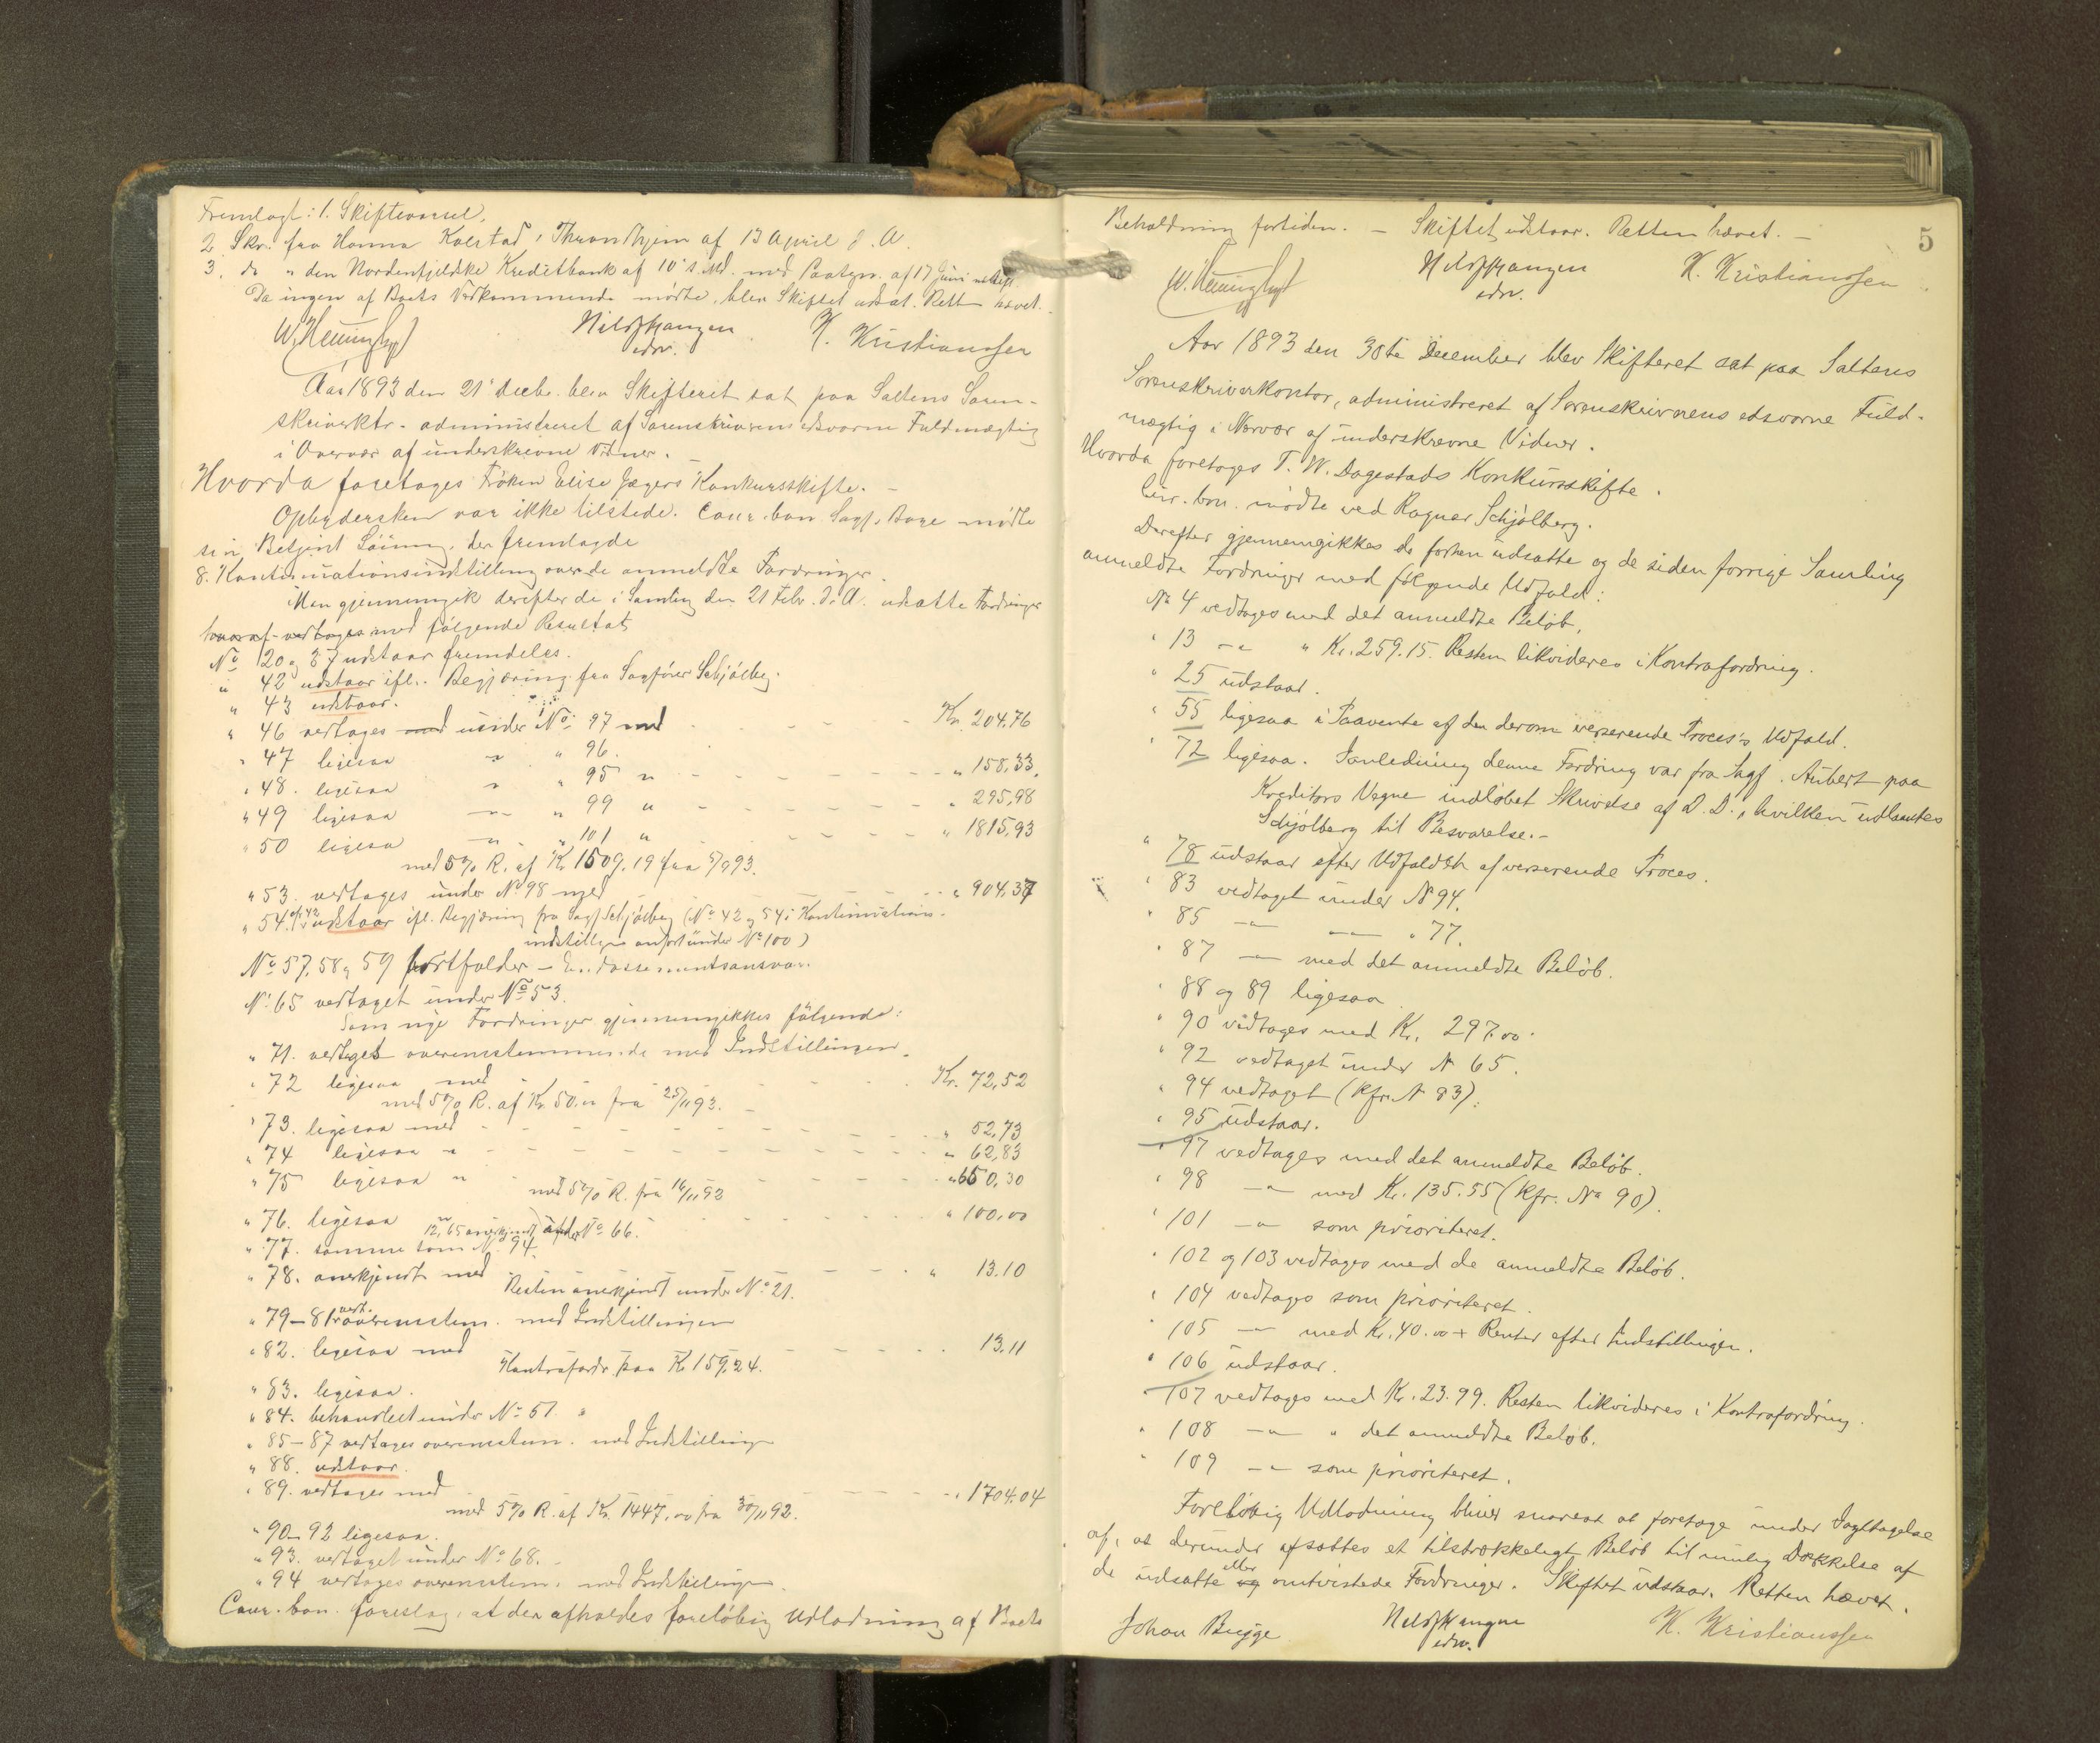 Fremlagt: 1. Skiftevarsel,
2 Skr. fra Hanna Kolstad, Throndhjem af 13 April d. A.
3. do " den Nordenfjeldske Kreditbank af 10' s. Md. med Paategn. af 17 Juni
Da ingen af Boets Vedkommende mødte, blev Skiftet udsat. Rett hævet.
Nils Hanzen
edsv.
K. Kristianssen
Aar 1893 den 21' Decbr. blev Skifteret sat paa Saltens Soren-
skriverktr. administreret af Sorenskriverens edsvorne Fuldmægtig
i Overvær af underskrevne Vidner.
Hvorda foretoges Frøken Elise Jægers Konkursskifte. -
Opbydersken var ikke tilstede. Cour. bon. Sagf. mødte
ved Betjent der fremlagde
8. Kontinuationsindstilling over de anmeldte Fordringer.
Man gjennemgik derefter de i Samling den 21 Febr. d. A. udsatte Fordringer
hvoraf vedtoges med følgende Resultat
No 20 og 37 udstaar fremdeles.
" 42 udstaar ifl. Begjæring fra Sagfører Schjølberg.
" 43 udstaar.
" 46 vedtages med under No 97 med - - - Kr. 204.76
" 47 ligesaa " " 96. - - - " 158,33.
" 48. ligesaa " " 95 " - - - " 295,98
" 49 ligesaa " " 99 " - - - " 1815,93
" 50 ligesa " " 101 "
med 5% R. af Kr 1509.19 fra 5/9 93.
" 53. vedtages under No 98 med - - " 904.37
" 54. udstaar ifl. Begjæring fra Sagf Schjølberg (No 42 og 54 i Kontinuations-
indstillingen anført under No 100)
No 57, 58 og 59 bortfalder - Endossementsansvar.
No 65 vedtaget under No 53.
Som nye Fordringer gjennemgikkes følgende:
" 71. vedtaget overensstemmende med Indstillingen.
" 72 ligesaa med - - - Kr. 72,52
med 5% R. af Kr. 50.00 fra 25/11 92. -
" 73. ligesaa med - - - " 52,73
" 74 ligesaa " - - - " 62,83
" 75 ligesaa " - - - " 650,30
med 5% R. fra 16/11 92
" 76. ligesaa - - - " 100,00
12,65 anerkjendt under No 66.
" 77. samme som No 94.
" 78. anerkjendt med - - - " 13.10
Resten anerkjendt under No 21.
" 79-81 vedt. overensstem. med Indstillingen
" 82. ligesaa med - - - 13.11
Kontrafordr. paa Kr 159.24.
" 83. ligesaa.
" 84. behandlet under No 51.
" 85-87 vedtages overensstem. med Indstilling
" 88. udstaar.
" 89. vedtages med - - - " 1704.04
med 5% R. af Kr. 1447,00 fra 30/11 92.
" 90-92 ligesaa.
" 93. vedtaget under No 68. -
" 94 vedtages overensstem. med Indstillingen.
Cour. bon. foreslog, at der afholdes foreløbig Udlodning af Boets
5
Beholdning fortiden. - Skiftet udstaar. Retten hævet. -
Nils Hanzen
edsv.
K. Kristianssen
Aar 1893 den 30te December blev Skifteret sat paa Saltens
Sorenskriverkontor, administreret af Sorenskriverens edsvorne Fuld-
mægtig i Nærvær af underskrevne Vidner.
Hvorda foretoges T. W. Dagestads Konkursskifte.
Cur. bon. mødte ved Ragnar Schjølberg.
Derefter gjennemgikkes de forhen udsatte og de siden forrige Samling
anmeldte Fordringer med følgende Udfald:
No 4 vedtages med det anmeldte Beløb,
" 13 -"- " Kr. 259.15. Resten likvideres i Kontrafordring.
" 25 udstaar.
" 55 ligesaa i Paavente af den derom verserende Proces's Udfald.
" 72 ligesaa. I Anledning denne Fordring var fra Sagf. Aubert paa
Kreditors Vegne indløbet Skrivelse af D. D., hvilken udlaantes
Schjølberg til Besvarelse. -
" 78 udstaar efter Udfaldet af verserende Proces.
" 83 vedtaget under N 94.
" 85 -"- -"- " 77.
" 87 -"- med det anmeldte Beløb.
" 88 og 89 ligesaa
" 90 vedtages med Kr. 297.00.
" 92 vedtaget under N 65.
" 94 vedtaget (kfr. N 83).
" 95 udstaar.
" 97 vedtages med det anmeldte Beløb.
" 98 -"- med Kr. 135.55 (kfr. No 90).
" 101 -"- som prioriteret.
" 102 og 103 vedtages med de anmeldte Beløb.
" 104 vedtages som prioriteret.
" 105 -"- med Kr. 40.00 + Renter efter Indstillingen.
" 106 udstaar.
" 107 vedtages med Kr. 23.99. Resten likvideres i Kontrafordring.
" 108 -"- " det anmeldte Beløb.
" 109 -"- som prioriteret.
Foreløbig Udlodning bliver snarest at foretage under Iagttagelse
af, at derunder afsættes et tilstrækkeligt Beløb til mulig Dækkelse af
de udsatte og eller omtvistede Fordringer. Skiftet udstaar. Retten hævet.
Johan Bugge
Nils Hanzen
edsv.
K. Kristianssen